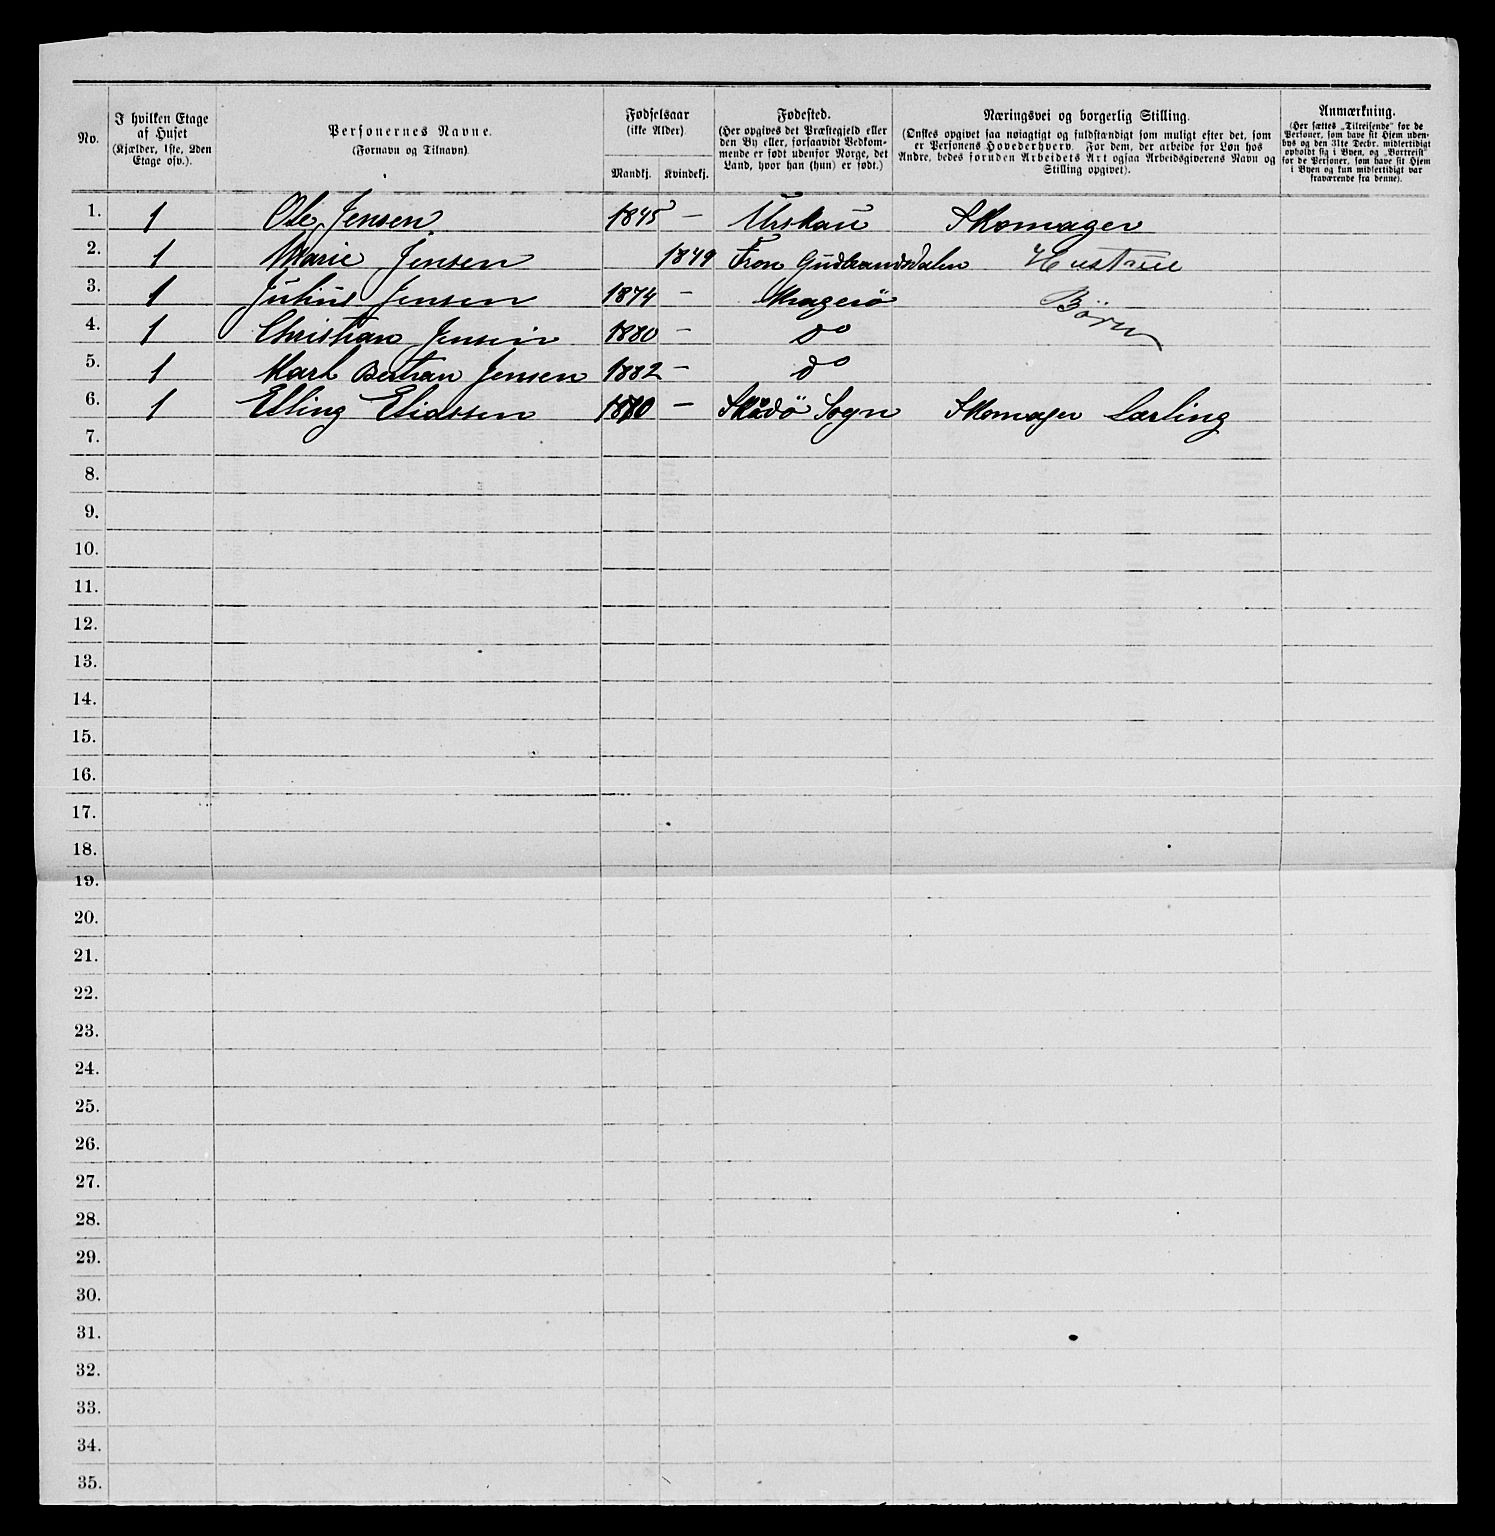 No.
I hvilken Etage
af Huset
(Kjælder, 1ste, 2den
Etage osv.).
Personernes Navne.
(Fornavn og Tilnavn).
Fødselsaar
(ikke Alder).
Mandkj. Kvindekj.
Fødested.
(Her opgives det Præstegjeld eller
den By eller, forsaavidt Vedkom-
mende er født udenfor Norge, det
Land, hvor han (hun) er født.)
Næringsvei og borgerlig Stilling.
(Ønskes opgivet saa nøiagtigt og fuldstændigt som muligt efter det, som
er Personens Hovederhverv. For dem, der arbeide for Løn hos
Andre, bedes foruden Arbeidets Art ogsaa Arbeidsgiverens Navn og
Stilling opgivet).
Anmærkning.
(Her sættes „Tilreisende" for de
Personer, som have sit Hjem uden-
bys og den 31te Decbr. midlertidigt
opholdt sig i Byen, og „Bortreist"
for de Personer, som have sit Hjem
i Byen og kun midlertidigt var
fraværende fra denne).
1. 1 Ole Jensen. 1845 – Urskau Skomager
2. 1 Marie Jensen 1849 Fron Gudbrandsdalen Hustrue
3. 1 Julius Jensen 1874 – Kragerö Börn
4. 1 Christian Jensen 1880 – do
5. 1 Karl Bertran Jensen 1882 – do
6. 1 Elling Eliassen 1870 – Skådö Sogn Skomager Lærling
7.
8.
9.
10.
11.
12.
13.
14.
15.
16.
17.
18.
19.
20.
21.
22.
23.
24.
25.
26.
27.
28.
29.
30.
31.
32.
33.
34.
35.